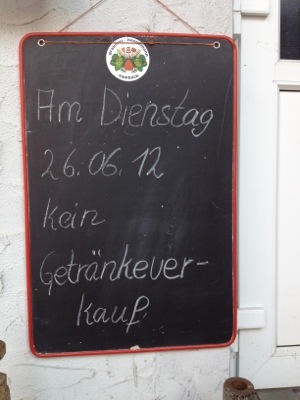 Am Dienstag
26.06.12
Kein
Getränkever-
kauf